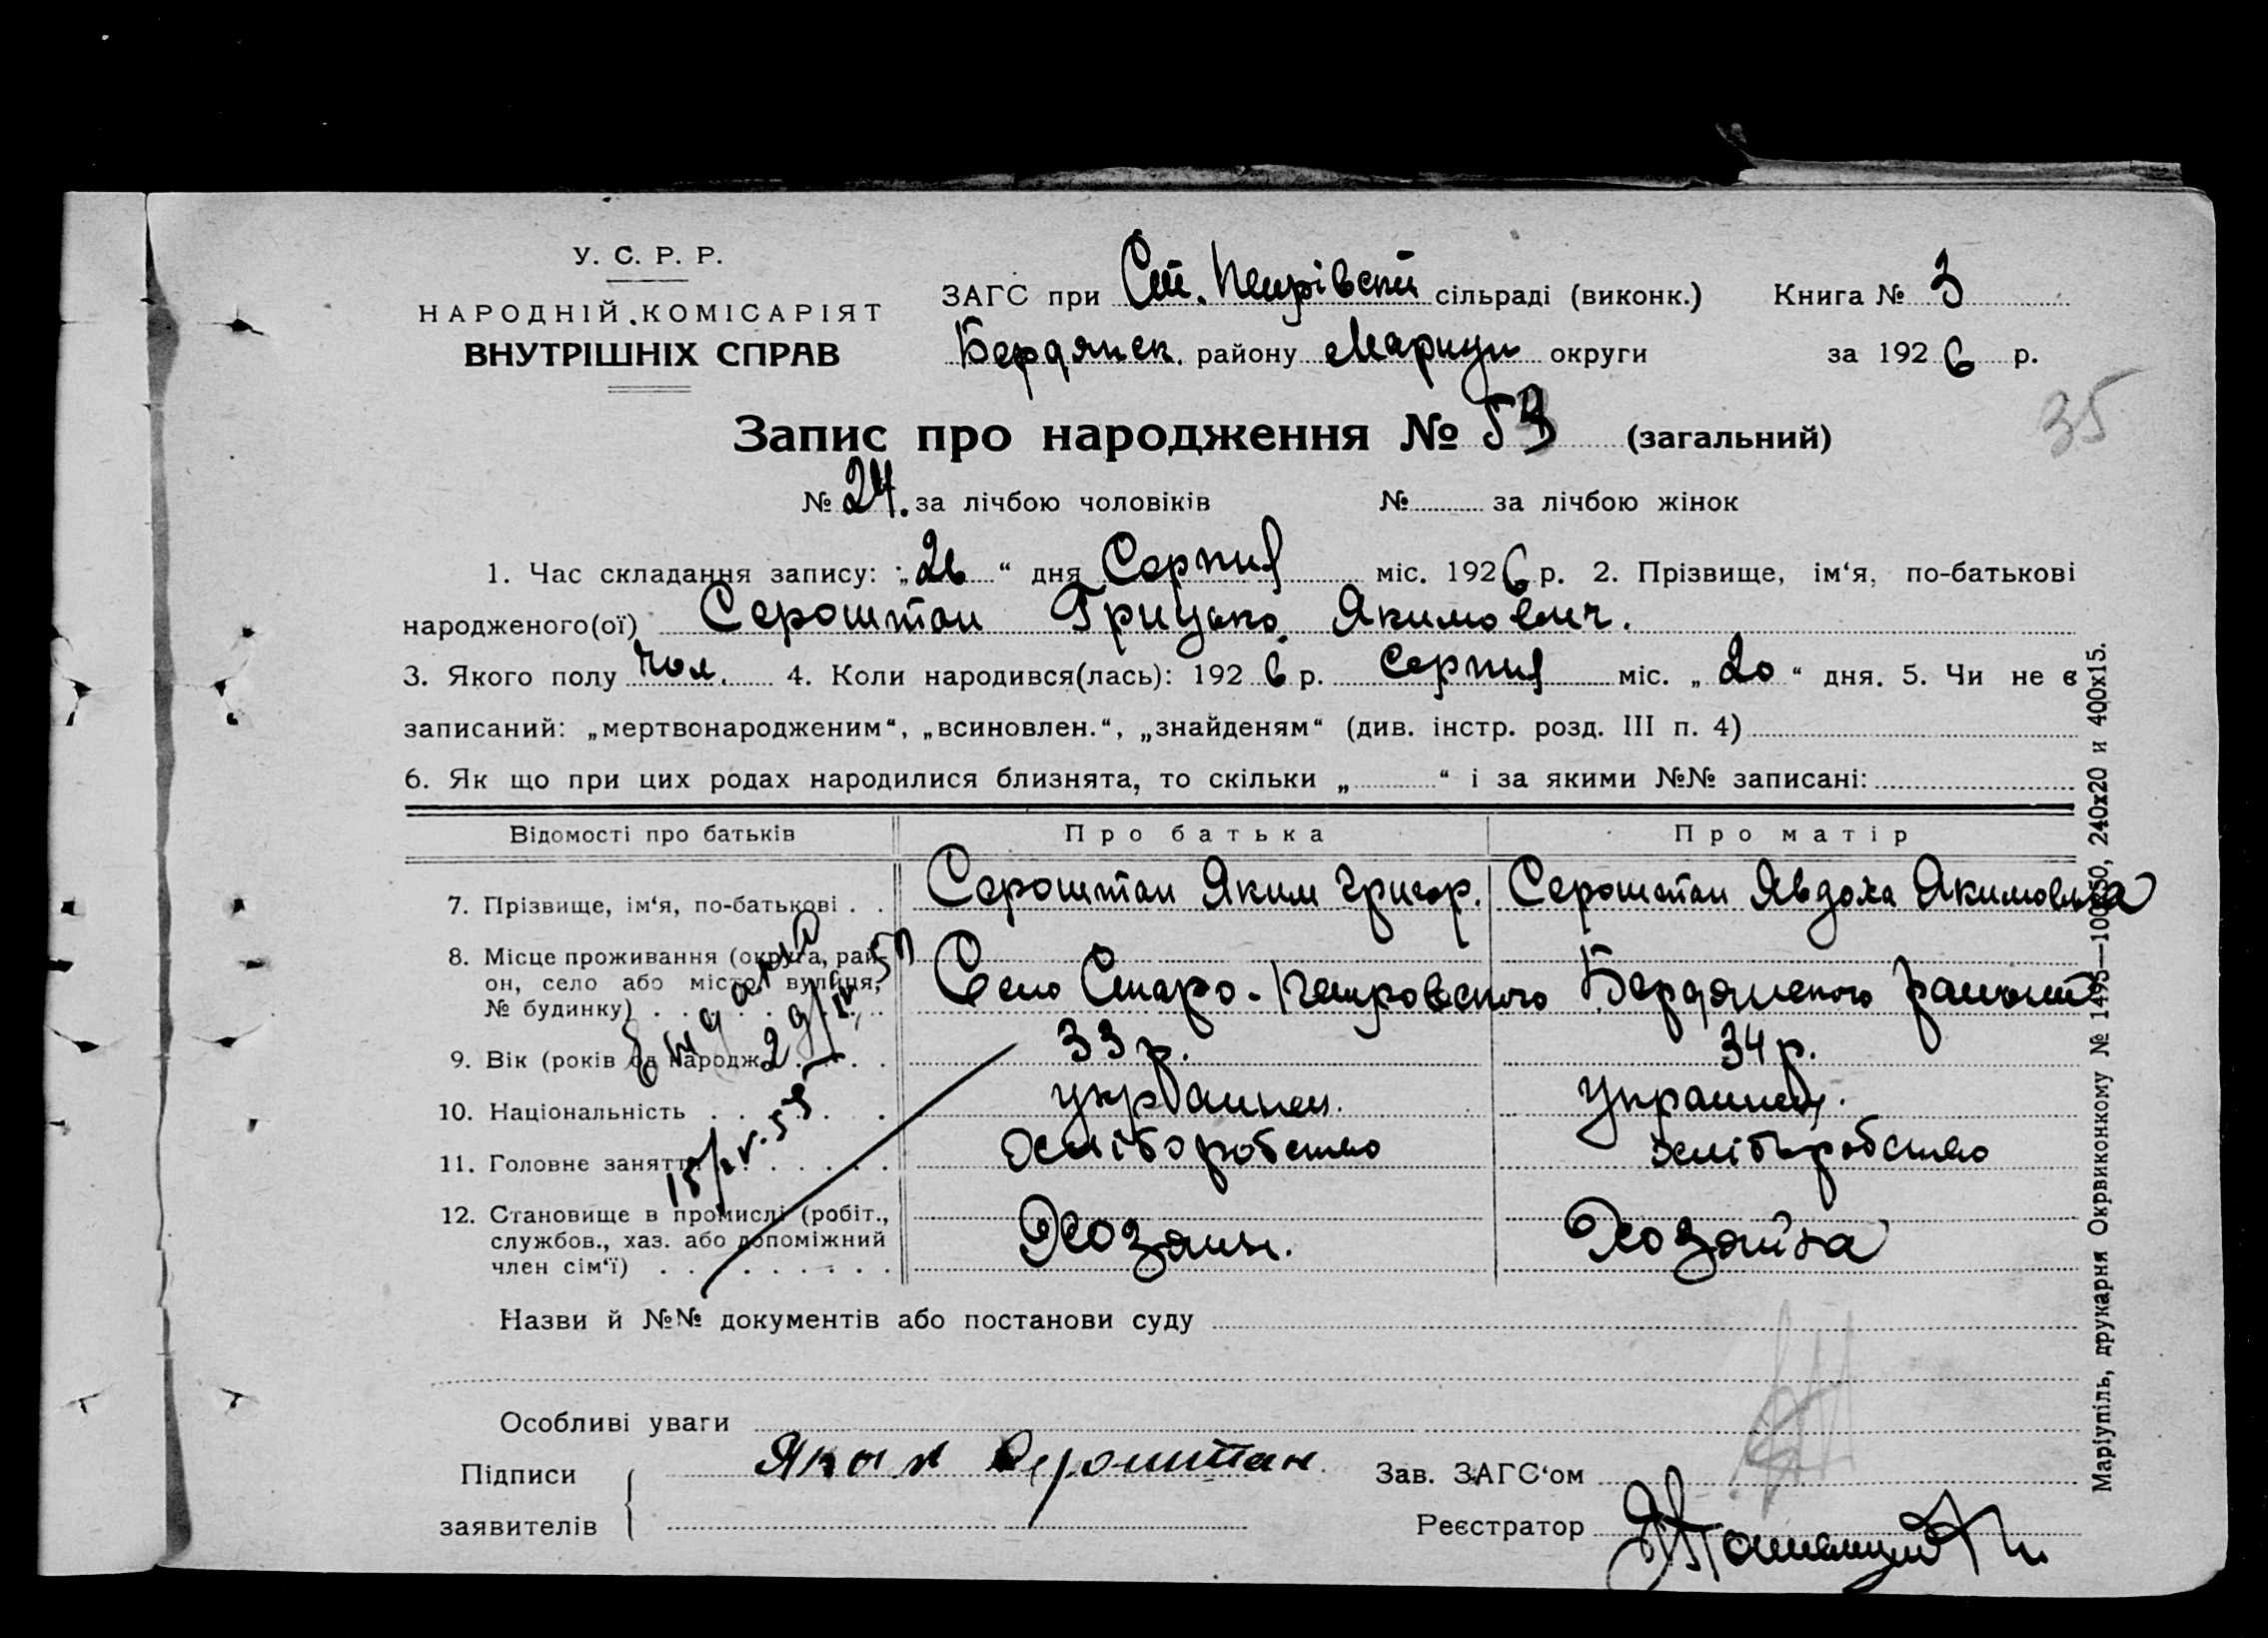 У. С. Р. Р.
НАРОДНІЙ КОМІСАРІЯТ
ВНУТРІШНІХ СПРАВ
ЗАГС при Ст. Петрівскій сільраді (виконк.) Книга № 3
Бердянск. району Мариуп округи за 1926 р.
35
Запис про народження № 53 (загальний)
№ 24. за лічбою чоловіків № за лічбою жінок
1. Час складання запису: „26“ дня Серпня міс. 1926 р. 2. Прізвище, ім‘я, по-батькові
народженого(ої) Сероштан Грицько Якимович.
3. Якого полу чол. 4. Коли народився(лась): 1926 р. Серпня міс. „20“ дня. 5. Чи не є
записаний: „мертвонародженим“, „всиновлен.“, „знайденям“ (див. інстр. розд. III п. 4)
6. Як що при цих родах народилися близнята, то скільки „ “ і за якими №№ записані:
Відомості про батьків Про батька Про матір
7. Прізвище, ім‘я, по-батькові . . Сероштан Яким Григор. Сероштан Явдоха Якимовна
8. Місце проживання (округа, рай-
он, село або місто, вулиця, Село Старо-Петровского Бердянского
№ будинку)
9. Вік (років од народж. 33 р. 34 р.
10. Національність украинец. Украинец.
11. Головне заняття хліборобство хліборобство
12. Становище в промислі (робіт.,
службов., хаз. або допоміжний Хозяин. Хозяйка
член сім‘ї)
15/IV-55
Назви й №№ документів або постанови суду
Особливі уваги
Підписи Яким Серошштан Зав. ЗАГС‘ом
заявителів Реєстратор
Маріупіль, друкарня Окрвиконкому № 1495—100×50, 240х20 и 400х15.